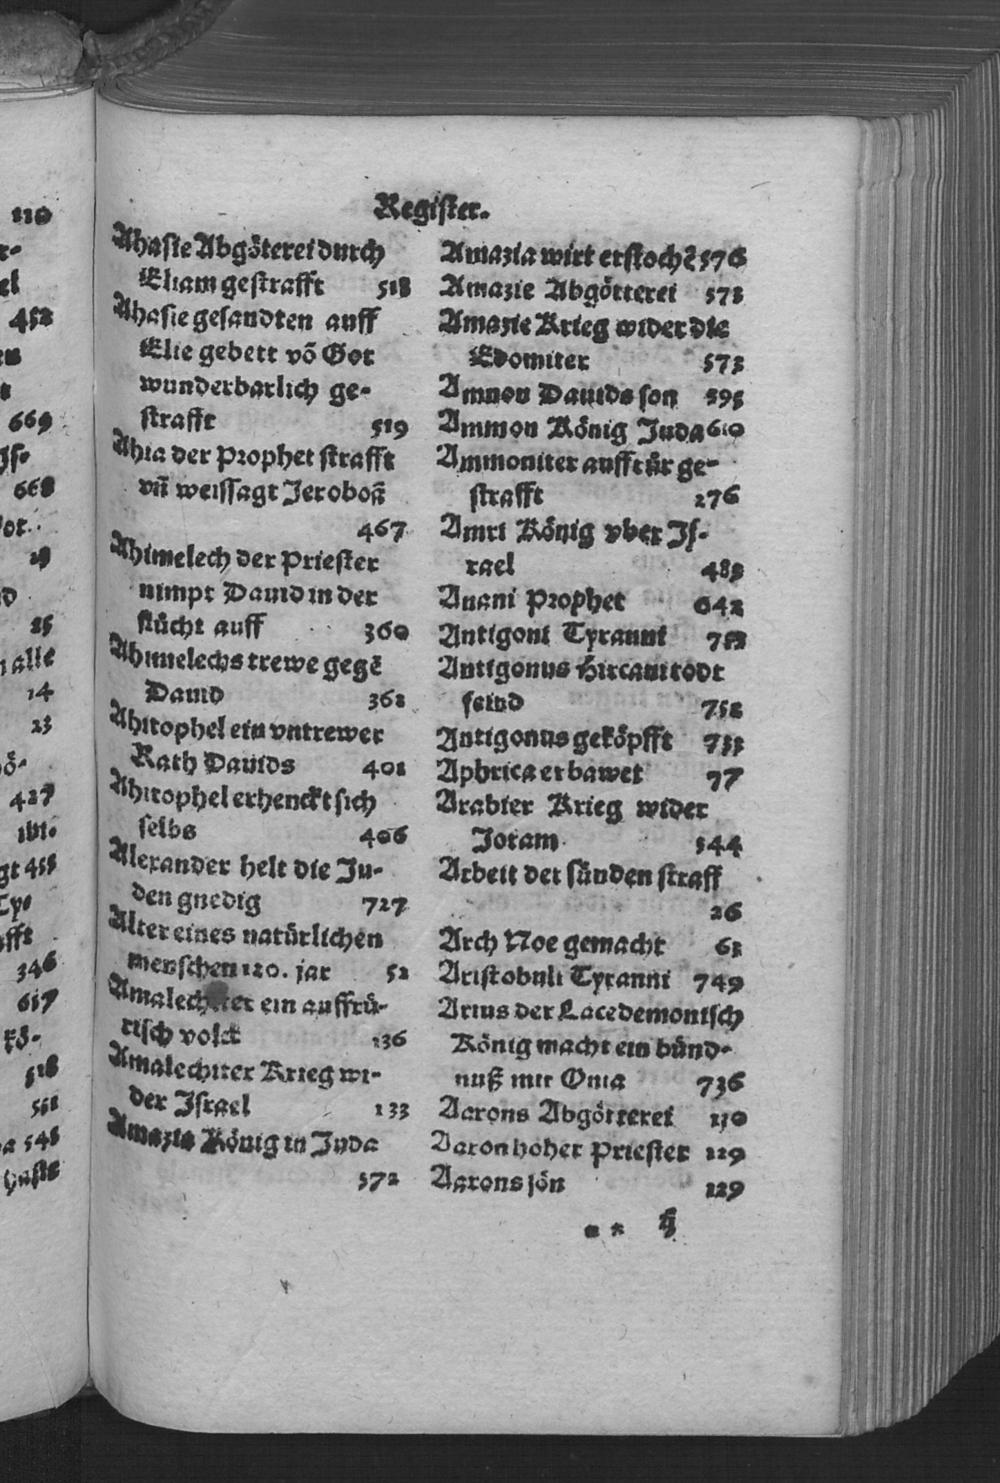 Register.
Ahasie Abgötterei durch
Eliam gestrafft 518
Ahasie gesandten auff
Elie gebett võ Got
wunderbarlich ge-
strafft 519
Ahia der Prophet strafft
vñ weissagt Jeroboã
467
Ahimelech der Priester
nimpt Dauid in der
flücht auff 360
Ahimelechs trewe gegẽ
Dauid 362
Ahitophel ein vntrewer
Rath Dauids 402
Ahitophel erhenckt sich
selbs 406
Alexander helt die Ju-
den gnedig 727
Alter eines natürlichen
menschen 120. jar 52
Amalechiter ein auffrü-
risch volck 136
Amalechiter Krieg wi-
der Israel 133
Amazia König in Juda
572
Amazia wirt erstochẽ 576
Amazie Abgötterei 573
Amazie Krieg wider die
Edomiter 573
Amnon Dauids son 395
Ammon König Juda 610
Ammoniter auffrür ge-
strafft 276
Amri König vber Js-
rael 483
Anani Prophet 642
Antigoni Tyranni 753
Antigonus Hircani todt
feind 752
Antigonus geköpfft 753
Aphrica erbawet 77
Arabier Krieg wider
Joram 544
Arbeit der sünden straff
26
Arch Noe gemacht 63
Aristobuli Tyranni 749
Arius der Lacedemonisch
König macht ein bünd-
nuß mit Onia 736
Aarons Abgötterei 130
Aaron hoher Priester 129
Aarons sön 129
* * ij
110
452
669
668
28
25
alle
14
23
427
ibi.
346
617
kö-
518